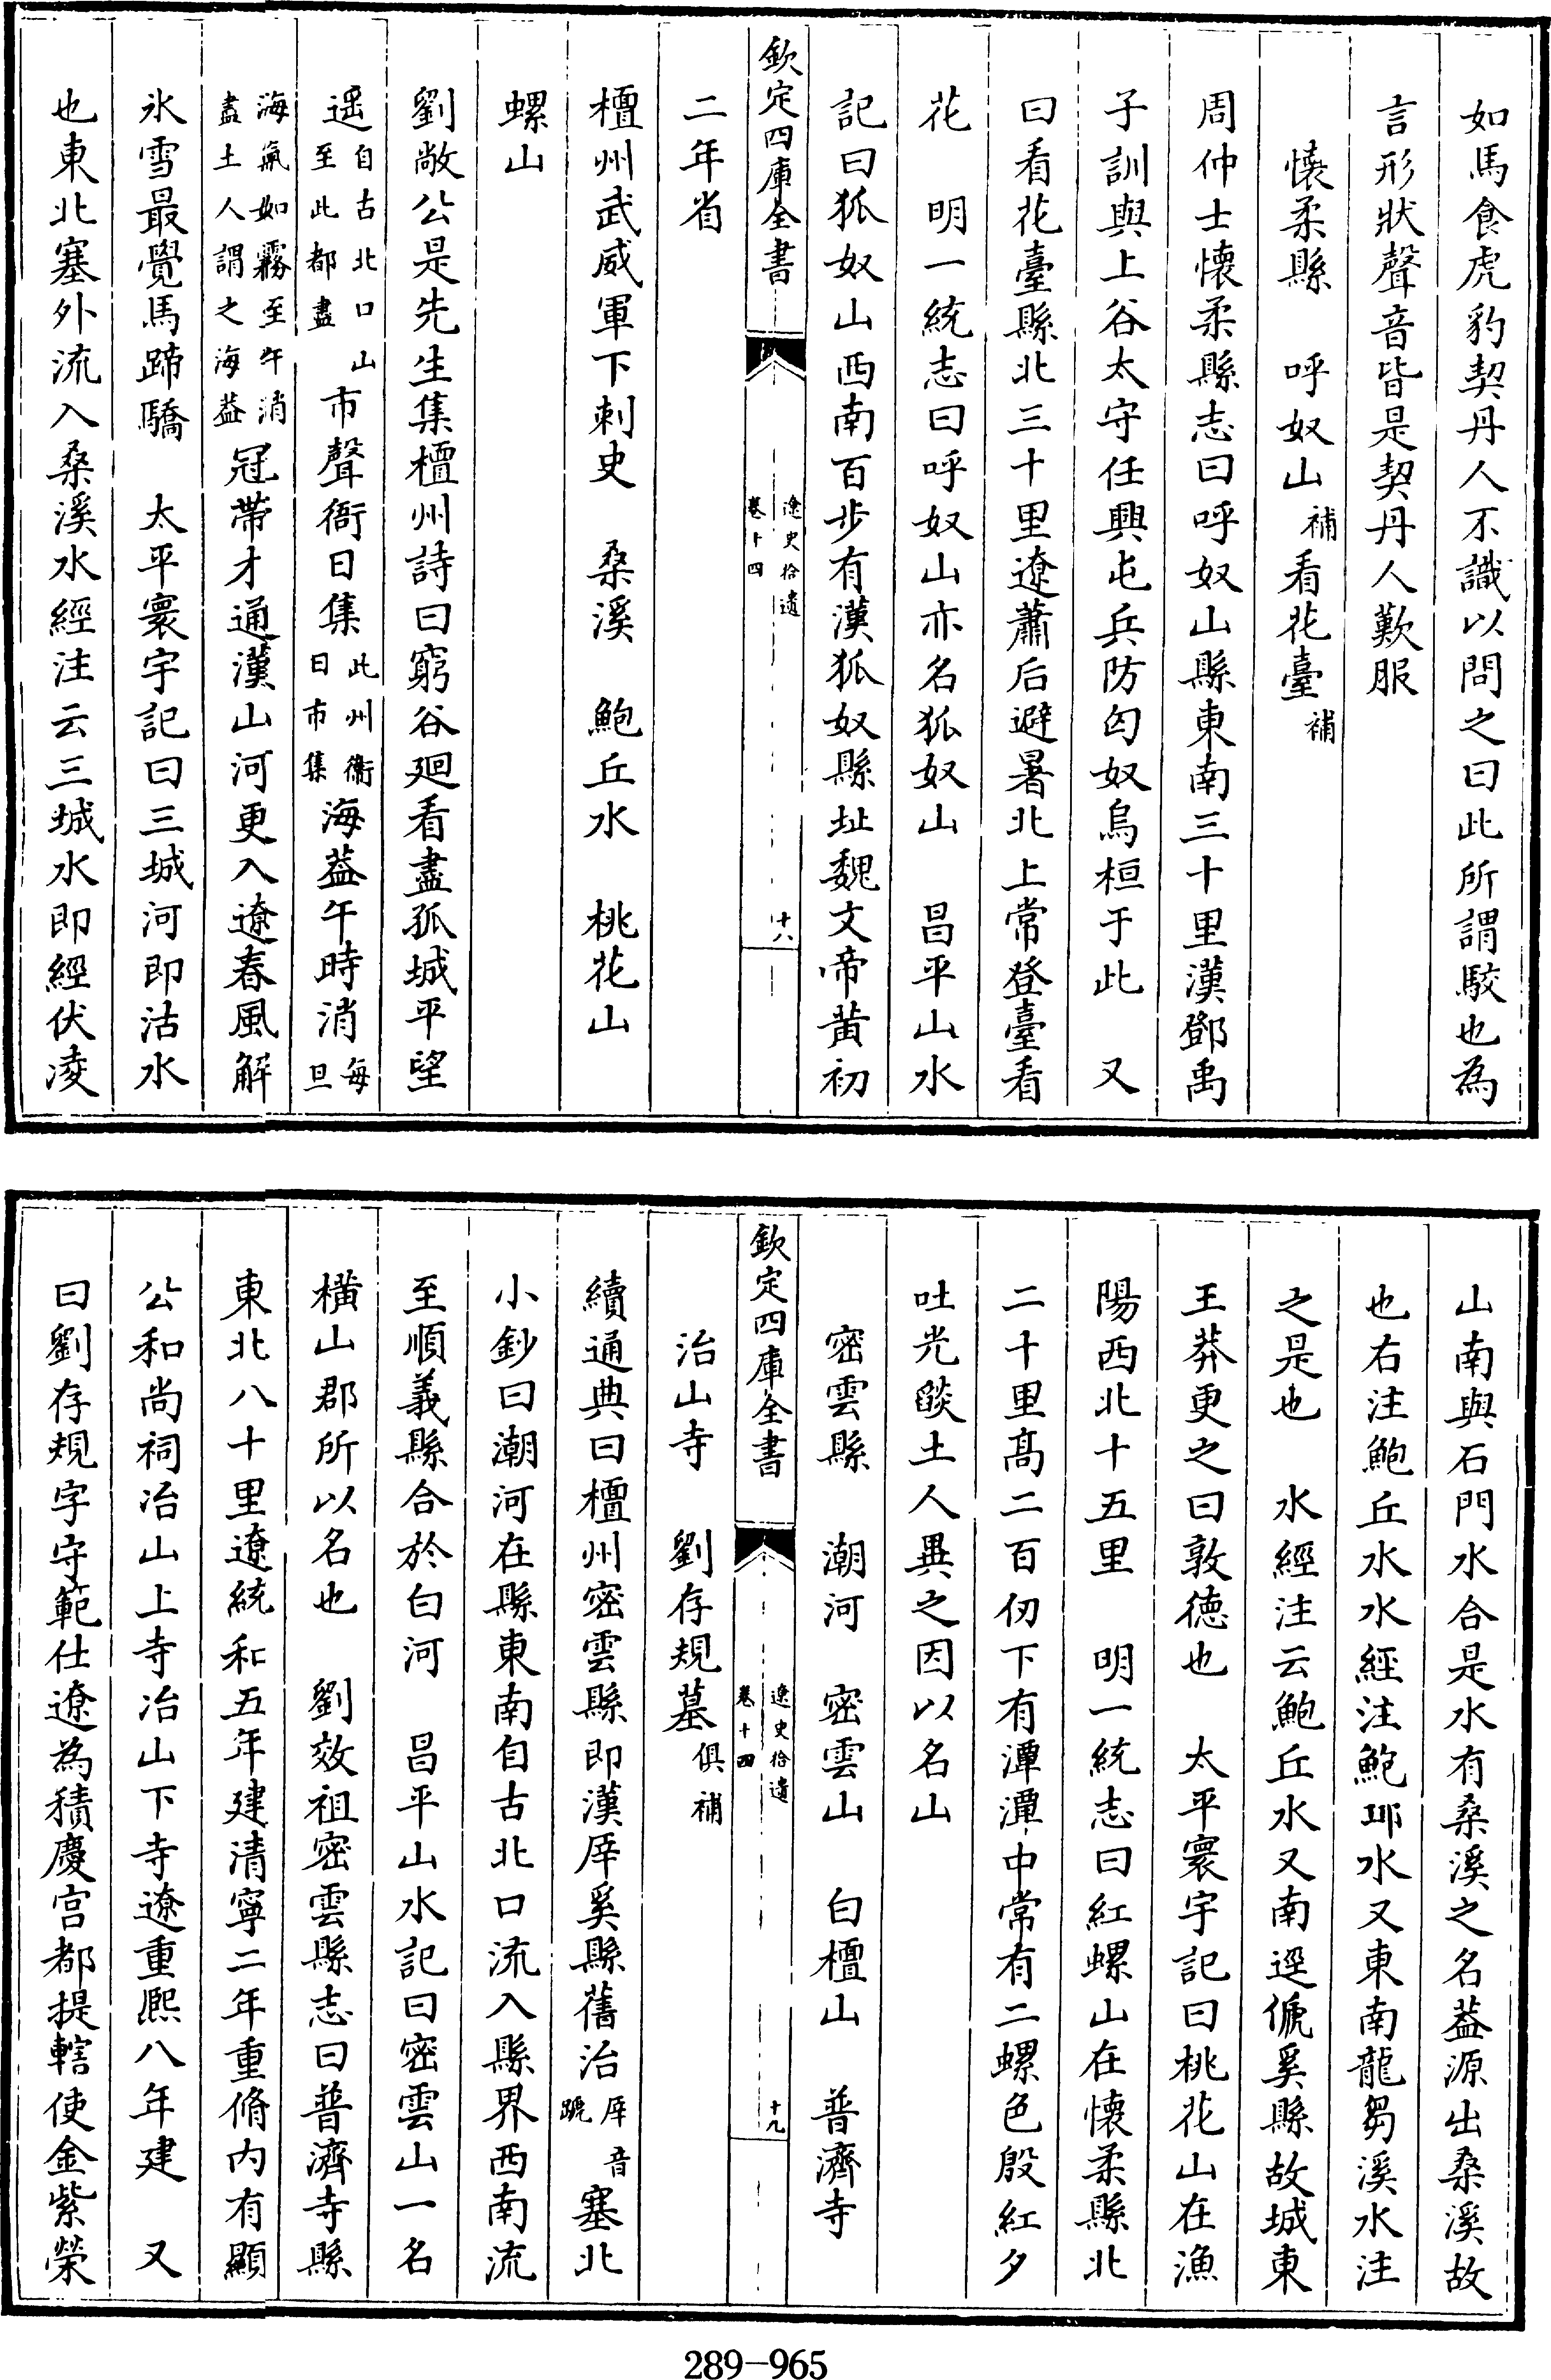 如馬食虎豹契丹人不識以問之曰此所謂駮也為
言形狀聲音皆是契丹人歎服
懷柔縣　呼奴山補看花臺補
周仲士懷柔縣志曰呼奴山縣東南三十里漢鄧禹
子訓與上谷太守任興屯兵防匈奴烏桓于此　又
曰看花臺縣北三十里遼蕭后避暑北上常登臺看
花　明一統志曰呼奴山亦名狐奴山　昌平山水
記曰狐奴山西南百步有漢狐奴縣址魏文帝黃初
欽定四庫全書
遼史拾遺
卷十四
十八
二年省
檀州武威軍下刺史　桑溪　鮑丘水　桃花山
螺山
劉敞公是先生集檀州詩曰窮谷廻看盡孤城平望
遥自古北口山至此都盡市聲衙日集此州衙日市集海葢午時消每旦
海氣如霧至午消盡土人謂之海葢冠帶才通漢山河更入遼春風解
氷雪最覺馬蹄驕　太平寰宇記曰三城河即沽水
也東北塞外流入桑溪水經注云三城水即經伏凌
山南與石門水合是水有桑溪之名葢源出桑溪故
也右注鮑丘水水經注鮑邱水又東南龍芻溪水注
之是也　水經注云鮑丘水又南逕傂奚縣故城東
王莽更之曰敦德也　太平寰宇記曰桃花山在漁
陽西北十五里　明一統志曰紅螺山在懷柔縣北
二十里高二百仞下有潭潭中常有二螺色殷紅夕
吐光燄土人異之因以名山
密雲縣　潮河　密雲山　白檀山　普濟寺
欽定四庫全書
遼史拾遺
卷十四
十九
冶山寺　劉存規墓俱補
續通典曰檀州密雲縣即漢厗奚縣舊治厗音蹏塞北
小鈔曰潮河在縣東南自古北口流入縣界西南流
至順義縣合於白河　昌平山水記曰密雲山一名
橫山郡所以名也　劉效祖密雲縣志曰普濟寺縣
東北八十里遼統和五年建清寧二年重脩内有顯
公和尚祠冶山上寺冶山下寺遼重熙八年建　又
曰劉存規字守範仕遼為積慶宮都提轄使金紫榮
289-965